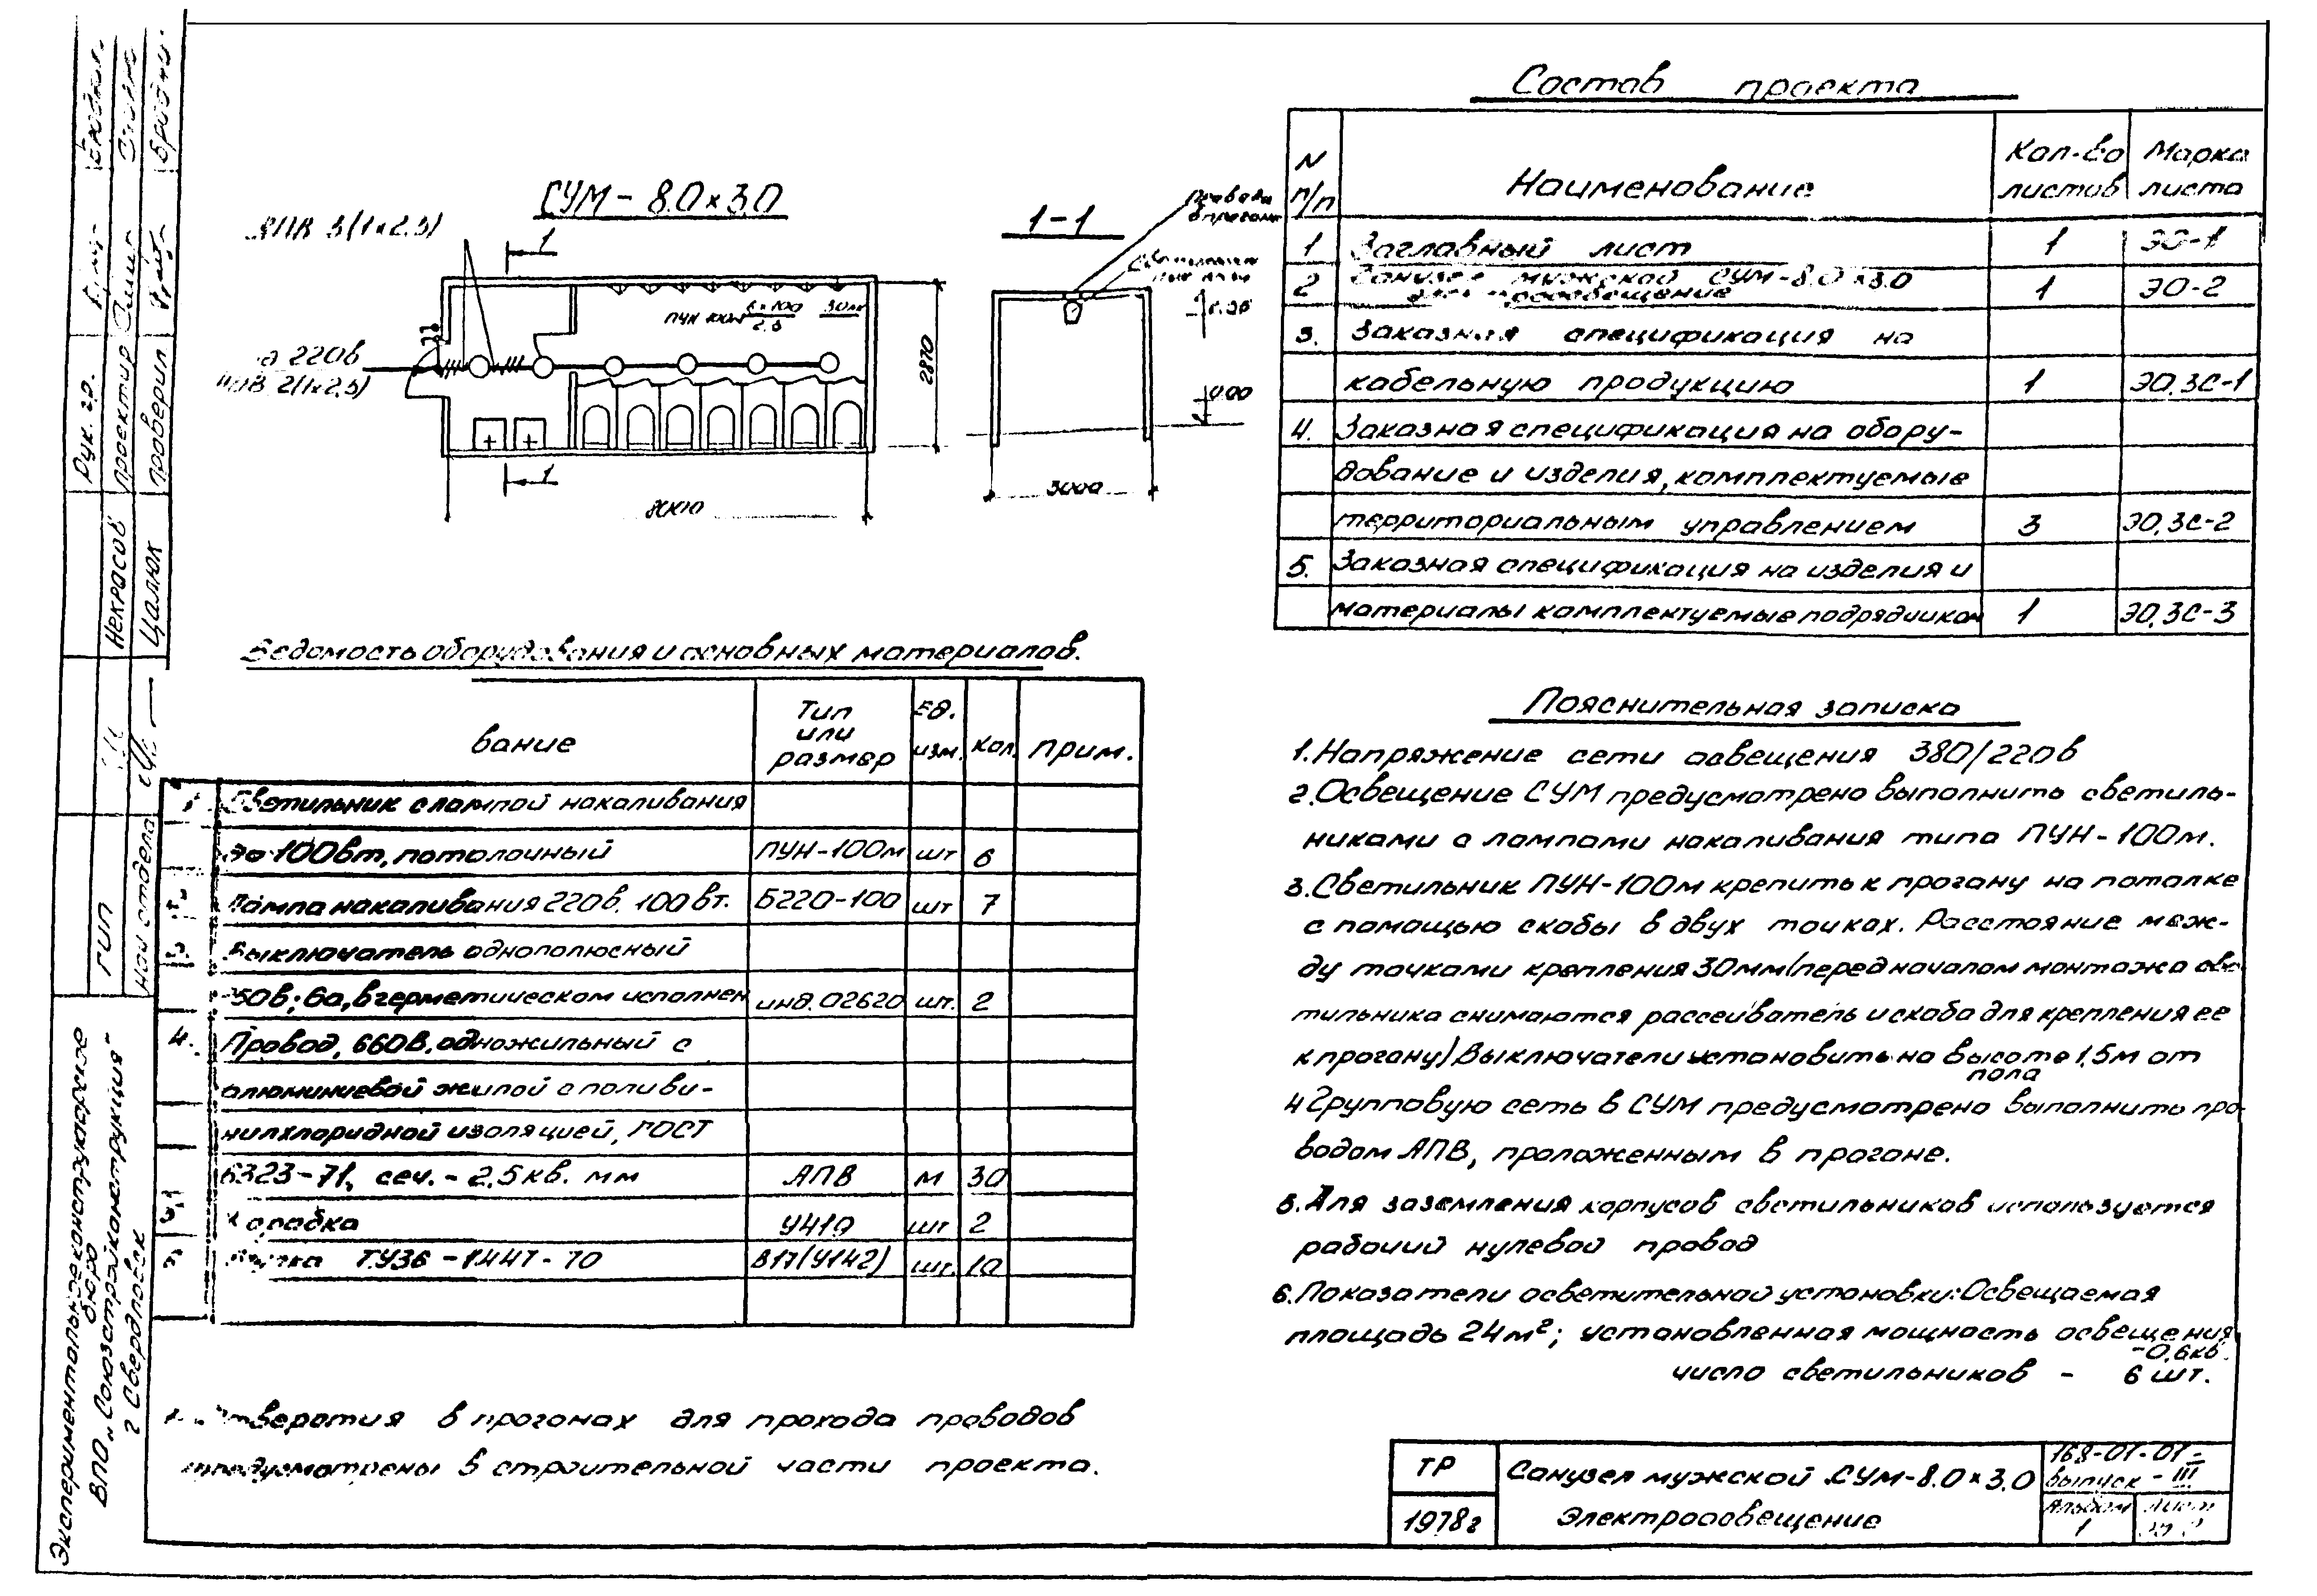 СУМ-8.0×3.0
1-1
1
220в
ПУН 100м 6×100 30лк
2,5
2870
0.00
1
8000
3000
Состав проекта
N п/п Наименование Кол-во листов Марка листа
1 Заглавный лист 1 ЭО-1
2 Санузел мужской СУМ-8.0×3.0
Электроосвещение 1 ЭО-2
3. Заказная спецификация на
кабельную продукцию 1 ЭО.ЗС-1
4. Заказная спецификация на обору-
дование и изделия, комплектуемые
территориальным управлением 3 ЭО.ЗС-2
5. Заказная спецификация на изделия и
материалы комплектуемые подрядчиком 1 ЭО.ЗС-3
Ведомость оборудования и основных материалов.
вание Тип или размер Ед. изм. Кол. Прим.
1 Светильник с лампой накаливания
до 100вт, потолочный ПУН-100м шт 6
2 Лампа накаливания 220в. 100вт. Б220-100 шт 7
3. Выключатель однополюсный
250в; 6а, в герметическом исполнен инд.02620 шт. 2
4. Провод, 660В, одножильный с
алюминиевой жилой с поливи-
нилхлоридной изоляцией, ГОСТ
6323-71, сеч. - 2,5 кв. мм АПВ м 30
5. Коробка У419 шт 2
ТУ36-1447-70 В17(У142) шт. 10
Отверстия в прогонах для прохода проводов
предусмотрены в строительной части проекта.
Пояснительная записка
1. Напряжение сети освещения 380/220в
2. Освещение СУМ предусмотрено выполнить светиль-
никами с лампами накаливания типа ПУН-100м.
3. Светильник ПУН-100м крепить к прогану на потолке
с помощью скобы в двух точках. Расстояние меж-
ду точками крепления 30мм (перед началом монтажа све
тильника снимаются рассеиватель и скоба для крепления ее
к прогану) Выключатели установить на высоте 1,5м от
пола
4 Групповую сеть в СУМ предусмотрено выполнить про-
водом АПВ, проложенным в прогоне.
5. Для заземления корпусов светильников используется
рабочий нулевой провод
6. Показатели осветительной установки: Освещаемая
площадь 24м²; установленная мощность освещения
-0,6кв.
число светильников - 6 шт.
ТР
1978г
Санузел мужской СУМ-8.0×3.0
Электроосвещение
168-01-01-
выпуск - III
Альбом 1
Лист
Рук. гр.
Проектир
Проверил
Некрасов
Цалюк
ГИП
Нач отдела
Экспериментальноеконструкторское
бюро
ВПО „Союзстройконструкция"
г Свердловск